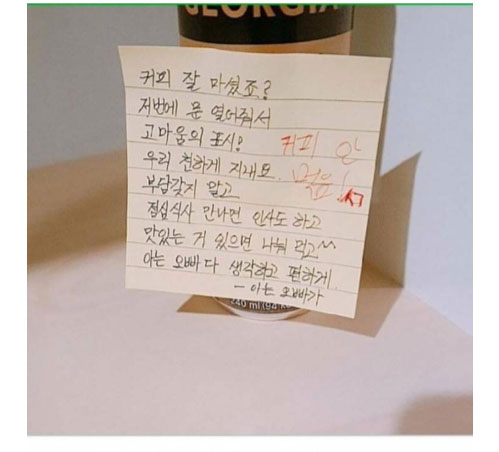 GEORGIA
커피 잘 마셨죠?
저번에 문 열어줘서
고마움의 표시?
우리 친하게 지내요.
부담갖지 말고
점심식사 만나면 인사도 하고
맛있는 거 있으면 나눠 먹고^^
아는 오빠다 생각하고 편하게.
- 아는 오빠가
커피 안
먹음!
240 ml (94 k